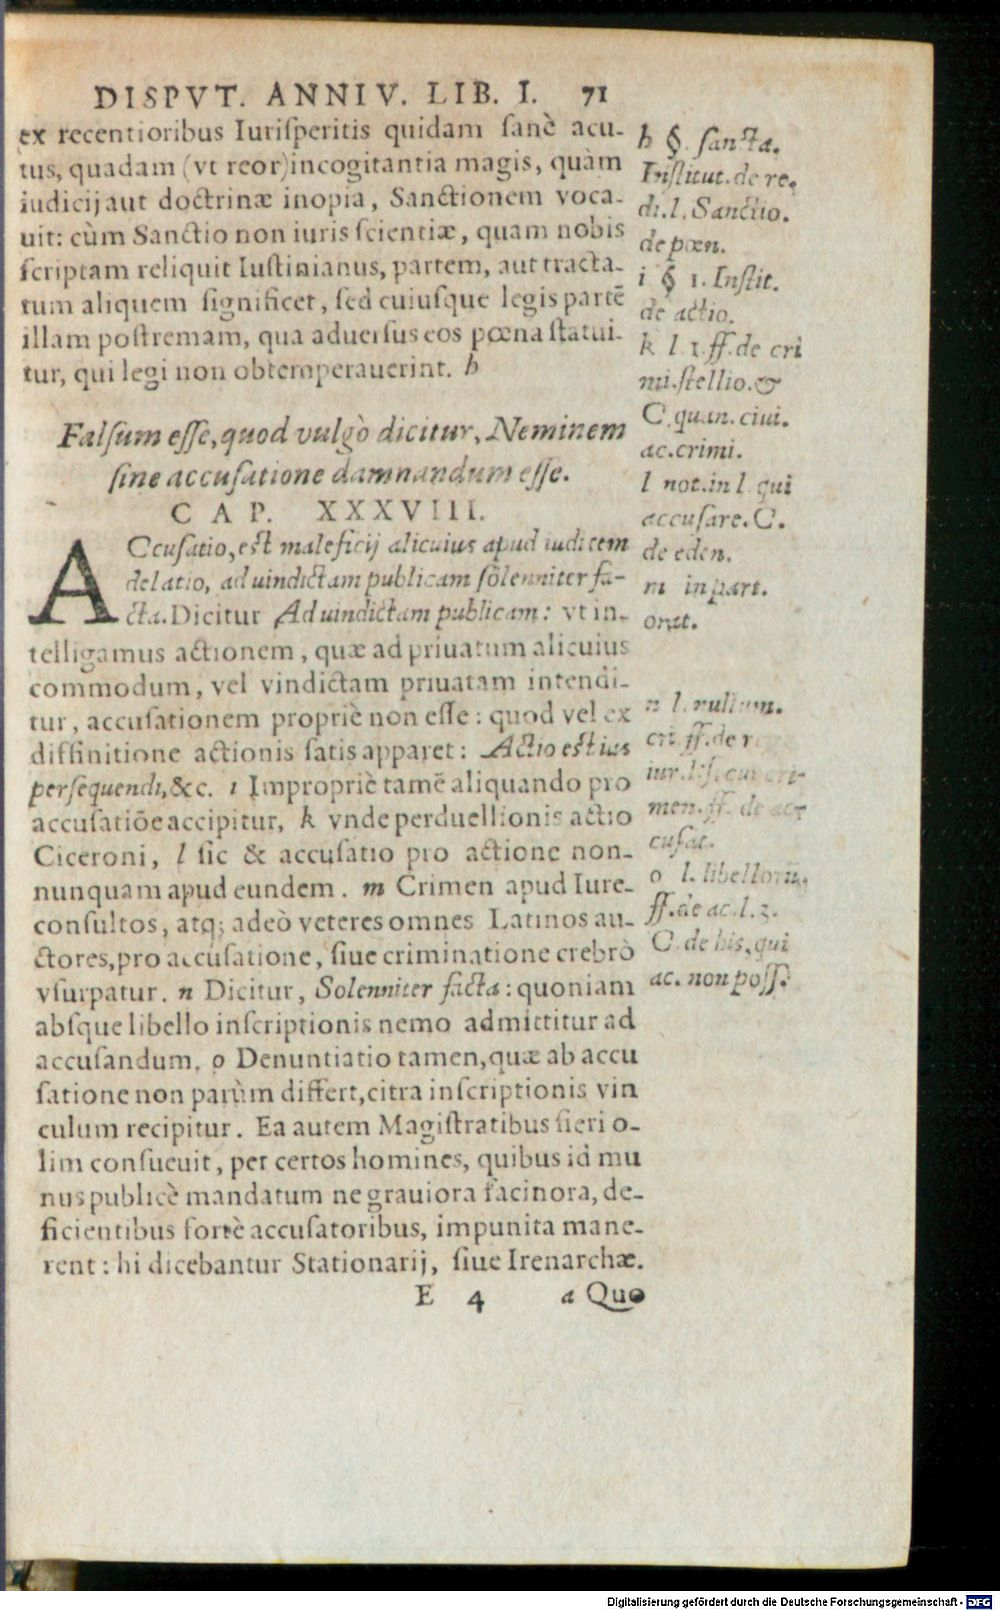 DISPVT. ANNIV. LIB. I. 71
ex recentioribus Iuriſperitis quidam ſanè acu-
tus, quadam (vt reor) incogitantia magis, quàm
iudicij aut doctrinæ inopia, Sanctionem voca-
uit: cùm Sanctio non iuris ſcientiæ, quam nobis
ſcriptam reliquit Iuſtinianus, partem, aut tracta-
tum aliquem ſignificet, ſed cuiuſque legis partẽ
illam poſtremam, qua aduerſus eos pœna ſtatui-
tur, qui legi non obtemperauerint. h
Falſum eſſe, quod vulgò dicitur, Neminem
ſine accuſatione damnandum eſſe.
CAP. XXXVIII.
ACcuſatio, eſt maleficij alicuius apud iudicem
delatio, ad uindictam publicam ſolenniter fa-
cta. Dicitur Ad uindictam publicam: vt in-
telligamus actionem, quæ ad priuatum alicuius
commodum, vel vindictam priuatam intendi-
tur, accuſationem propriè non eſſe: quod vel ex
diffinitione actionis ſatis apparet: Actio eſt ius
perſequendi, &c. i Impropriè tamẽ aliquando pro
accuſatiõe accipitur, k vnde perduellionis actio
Ciceroni, l ſic & accuſatio pro actione non-
nunquam apud eundem. m Crimen apud Iure-
conſultos, atq; adeò veteres omnes Latinos au-
ctores, pro accuſatione, ſiue criminatione crebrò
vſurpatur. n Dicitur, Solenniter facta: quoniam
abſque libello inſcriptionis nemo admittitur ad
accuſandum. o Denuntiatio tamen, quæ ab accu
ſatione non parùm differt, citra inſcriptionis vin
culum recipitur. Ea autem Magiſtratibus fieri o-
lim conſueuit, per certos homines, quibus id mu
nus publicè mandatum ne grauiora facinora, de-
ficientibus fortè accuſatoribus, impunita mane-
rent: hi dicebantur Stationarij, ſiue Irenarchæ.
E 4 a Quo
h §. ſancta.
Inſtitut. de re.
di. l. Sanctio.
de pœn.
i § 1. Inſtit.
de actio.
k l. 1. ff. de cri
mi. ſtellio. &
C. quan. ciui.
ac. crimi.
l not. in l. qui
accuſare. C.
de eden.
m in part.
orat.
n l. nullum.
cri. ff. de
iur. l. ſi cui cri-
men. ff. de ac-
cuſat.
o l. libellorũ.
ff. de ac. l. 3.
C. de his, qui
ac. non poſſ.
Digitalisierung gefördert durch die Deutsche Forschungsgemeinschaft - DFG